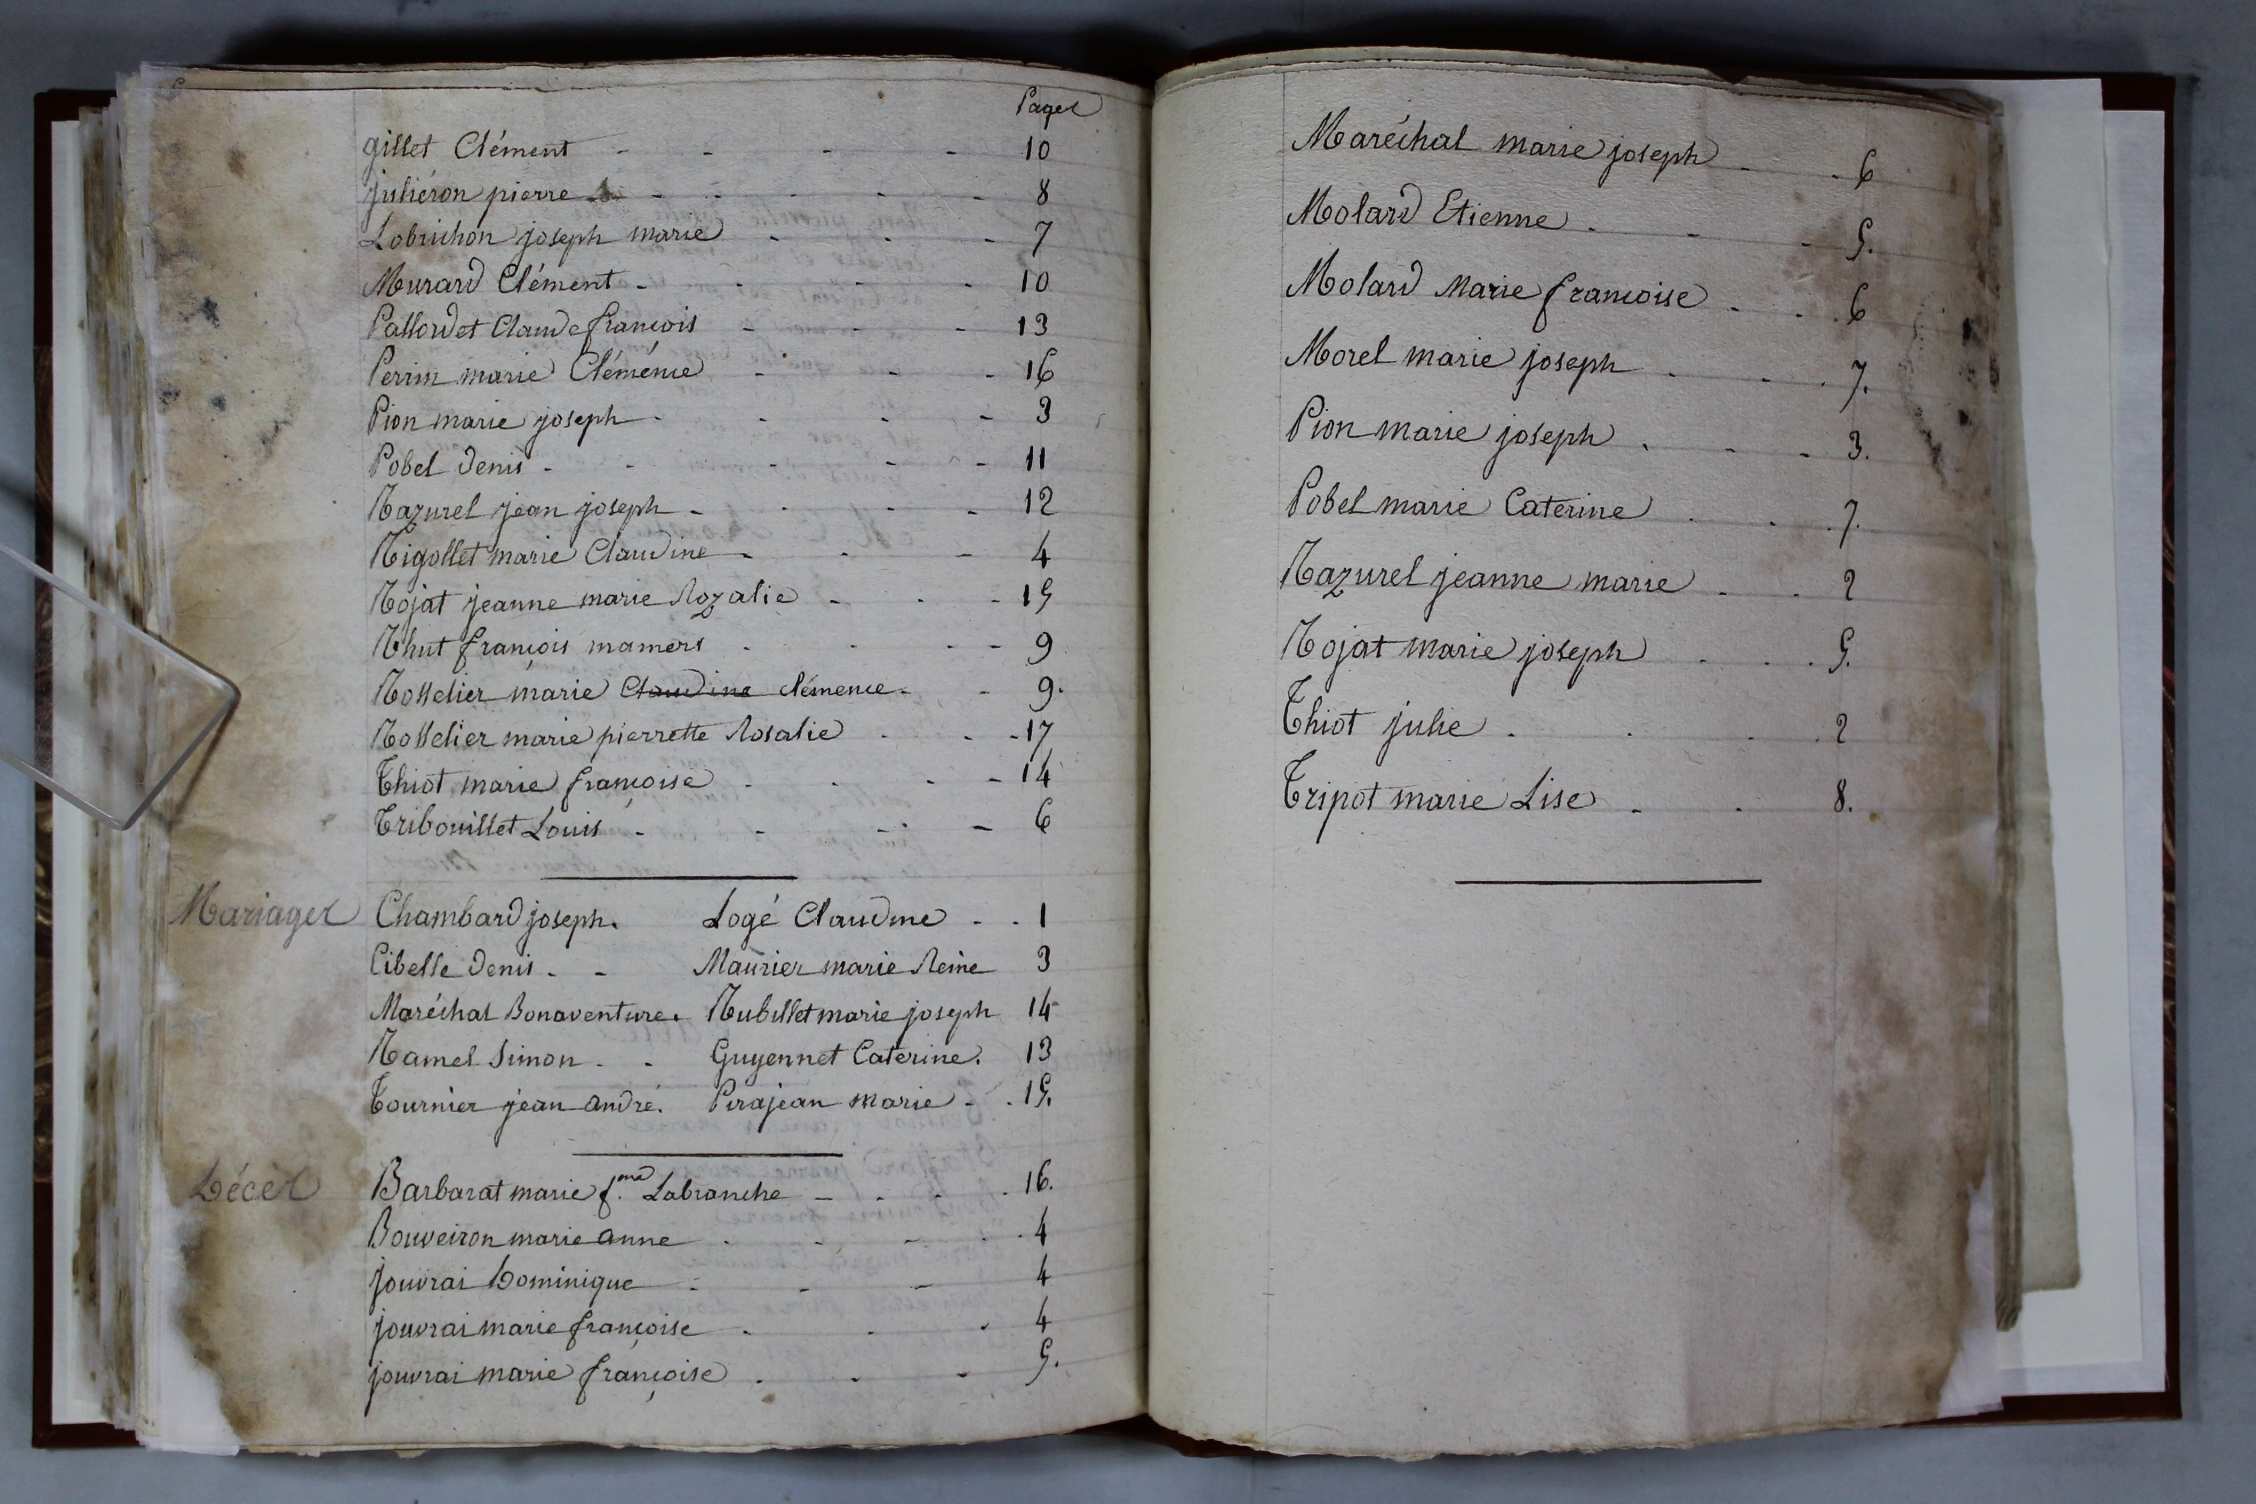 Pages
gillet Clément - - - - 10
juliéron pierre - - - - - 8
Lobrichon joseph marie - - - 7
Murard Clément - - - - 10
Pallordet Claude françois - - - 13
Perrin marie Clémence - - - 16
Pion marie joseph - - - - 3
Pobel denis - - - - - 11
Razurel jean joseph - - - - 12
Rigollet marie Claudine - - - 4
Rojat jeanne marie Rozalie - - - 15
Rhut françois mamers - - - - 9
Rosselier marie Claudine clémence - - 9.
Rosselier marie pierrette Rosalie - - - 17
Thiot marie françoise - - - - 14
Tribouillet Louis - - - - 6
Mariages Chambard joseph. Logé Claudine - - 1
Cibelle denis - - Maurier marie Reine 3
Maréchal Bonaventure. Rubillet marie joseph 14
Ramel Simon - - Guyennet Caterine. 13
Tournier jean andré. Pirajean marie - - 15.
Décès Barbarat marie f.me Labranche - - - - 16.
Bouveiron marie anne - - - - 4
jouvrai Dominique - - - 4
jouvrai marie françoise - - - 4
jouvrai marie françoise - - - 5.
Maréchal marie joseph - - 6
Molard Etienne - - - 5.
Molard Marie françoise - - - 6
Morel marie joseph - - - 7.
Pion marie joseph - - - 3.
Pobel marie Caterine - - - 7.
Razurel jeanne marie - - 2
Rojat marie joseph - - - 5.
Thiot julie - - - - 2
Tripot marie Lise - - 8.